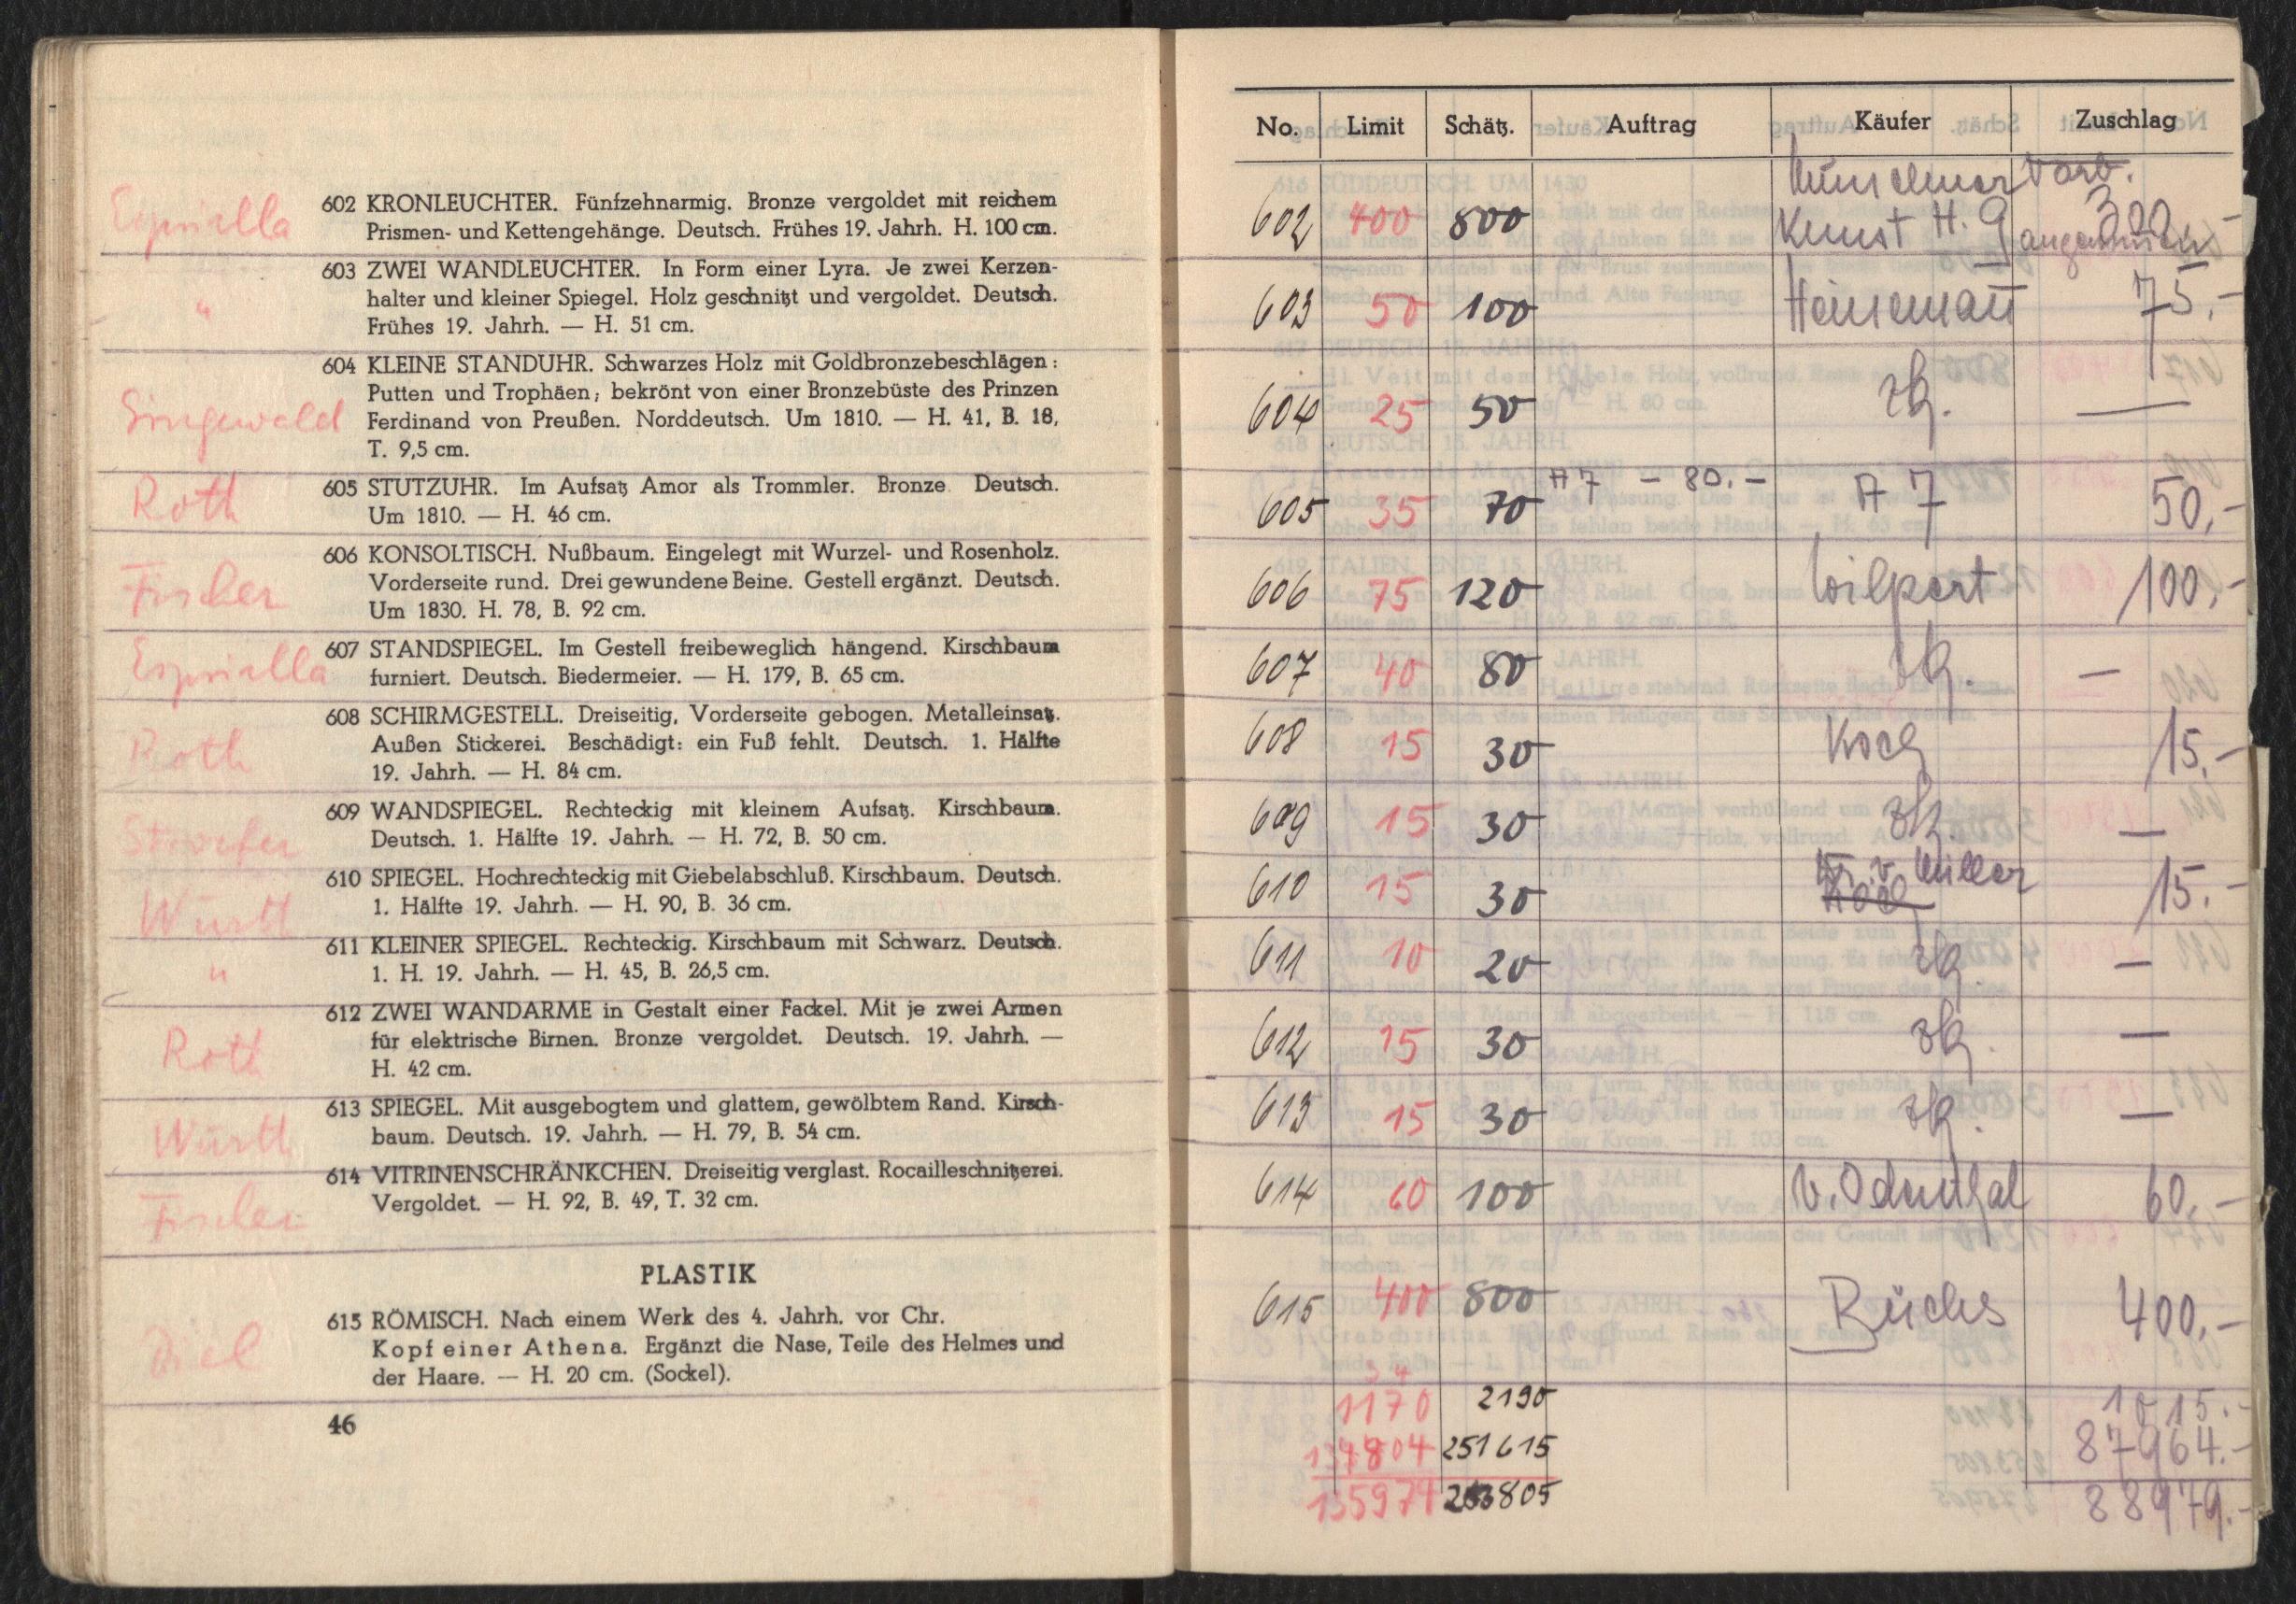 Espirilla
602 KRONLEUCHTER. Fünfzehnarmig. Bronze vergoldet mit reichem
Prismen- und Kettengehänge. Deutsch. Frühes 19. Jahrh. H. 100 cm.
"
603 ZWEI WANDLEUCHTER. In Form einer Lyra. Je zwei Kerzen-
halter und kleiner Spiegel. Holz geschnitzt und vergoldet. Deutsch.
Frühes 19. Jahrh. — H. 51 cm.
Singewald
604 KLEINE STANDUHR. Schwarzes Holz mit Goldbronzebeschlägen:
Putten und Trophäen; bekrönt von einer Bronzebüste des Prinzen
Ferdinand von Preußen. Norddeutsch. Um 1810. — H. 41, B. 18,
T. 9,5 cm.
Roth
605 STUTZUHR. Im Aufsatz Amor als Trommler. Bronze. Deutsch.
Um 1810. — H. 46 cm.
Fischer
606 KONSOLTISCH. Nußbaum. Eingelegt mit Wurzel- und Rosenholz.
Vorderseite rund. Drei gewundene Beine. Gestell ergänzt. Deutsch.
Um 1830. H. 78, B. 92 cm.
Espirilla
607 STANDSPIEGEL. Im Gestell freibeweglich hängend. Kirschbaum
furniert. Deutsch. Biedermeier. — H. 179, B. 65 cm.
Roth
608 SCHIRMGESTELL. Dreiseitig, Vorderseite gebogen. Metalleinsatz.
Außen Stickerei. Beschädigt: ein Fuß fehlt. Deutsch. 1. Hälfte
19. Jahrh. — H. 84 cm.
609 WANDSPIEGEL. Rechteckig mit kleinem Aufsatz. Kirschbaum.
Deutsch. 1. Hälfte 19. Jahrh. — H. 72, B. 50 cm.
Württ
610 SPIEGEL. Hochrechteckig mit Giebelabschluß. Kirschbaum. Deutsch.
1. Hälfte 19. Jahrh. — H. 90, B. 36 cm.
"
611 KLEINER SPIEGEL. Rechteckig. Kirschbaum mit Schwarz. Deutsch.
1. H. 19. Jahrh. — H. 45, B. 26,5 cm.
Roth
612 ZWEI WANDARME in Gestalt einer Fackel. Mit je zwei Armen
für elektrische Birnen. Bronze vergoldet. Deutsch. 19. Jahrh. —
H. 42 cm.
Württ
613 SPIEGEL. Mit ausgebogtem und glattem, gewölbtem Rand. Kirsch-
baum. Deutsch. 19. Jahrh. — H. 79, B. 54 cm.
Fischer
614 VITRINENSCHRÄNKCHEN. Dreiseitig verglast. Rocailleschnitzerei.
Vergoldet. — H. 92, B. 49, T. 32 cm.
PLASTIK
Diel
615 RÖMISCH. Nach einem Werk des 4. Jahrh. vor Chr.
Kopf einer Athena. Ergänzt die Nase, Teile des Helmes und
der Haare. — H. 20 cm. (Sockel).
46
No. Limit Schätz. Auftrag Käufer Zuschlag
Münchner Vorb.
602 400 800 Kunst H. G 300.-
angenommen
603 50 100 Heinemann 75.-
604 25 50 zk. —
605 35 70 A 7 - 80.- A 7 50,-
606 75 120 Wilpert 100,-
607 40 80 zk. —
608 15 30 Koch 15.-
609 15 30 zk. —
Dr. v. Miller
610 15 30 Koch 15.-
611 10 20 zk. —
612 15 30 zk. —
613 15 30 zk. —
614 60 100 v. Odenthal 60,-
615 400 800 Rüchs 400.-
1170 2190 1015.-
134804 251615 87964.-
135974 253805 88979.-